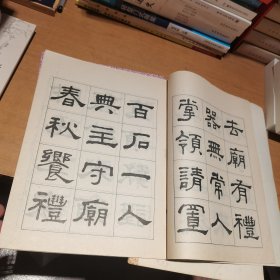 去廟有禮
器無常人
掌領請置
百石一人
典主守廟
春秋饗禮